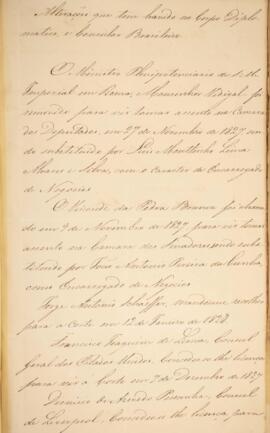 Alterações que tem havido no Corpo Diplo-
matico, e Consular Brasileiro
O Ministro Plenipotenciario de S. M.
Imperial em Roma, Monsenhor Vidigal foi
removido para vir tomar assento na Camara
dos Deputados, em 27 de Novembro de 1827, sen-
do substituido por Luis Moutinho Lima
Alvares e Silva, com o caracter de Encarregado
de Negocios
O Visconde da Pedra Branca foi chama-
do em 9 de Novembro de 1827 para vir tomar
assento na Camara dos Senadores sendo subs-
tituido por João Antonio Pereira da Cunha,
como Encarregado de Negocios
Jorge Antonio Schaffer, mandou-se recolher
para a Corte em 12 de Janeiro de 1828.
Francisco Joaquim de Lima, Consul
Geral dos Estados Unidos. Concedeu-se lhe licença
para vir a Corte em 7 de Dezembro de 1827
de Azevedo Pessanha, Consul
de Liverpool, Concedeu-se lhe licença, para